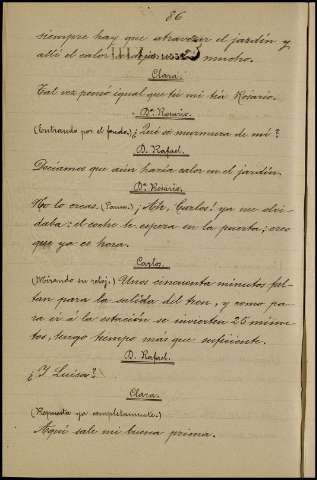 86
siempre hay que atravesar el jardín y
allí el calor todavía es mucho.
Clara.
Tal vez pensó igual que tú mi tía Rosario.
Dª Rosario.
(Entrando por el fondo.) ¿Qué se murmura de mí?
D. Rafael.
Decíamos que aún haría calor en el jardín.
Dª Rosario.
No lo creas. (Pausa.) ¡Ah, Carlos! ya me olvi-
daba: el coche te espera en la puerta; creo
que ya es hora.
Carlos.
(Mirando su reloj.) Unos cincuenta minutos fal-
tan para la salida del tren, y como pa-
ra ir á la estación se invierten 25 minu-
tos, tengo tiempo más que suficiente.
D. Rafael.
¿Y Luisa?
Clara.
(Repuesta ya completamente.)
Aquí sale mi buena prima.